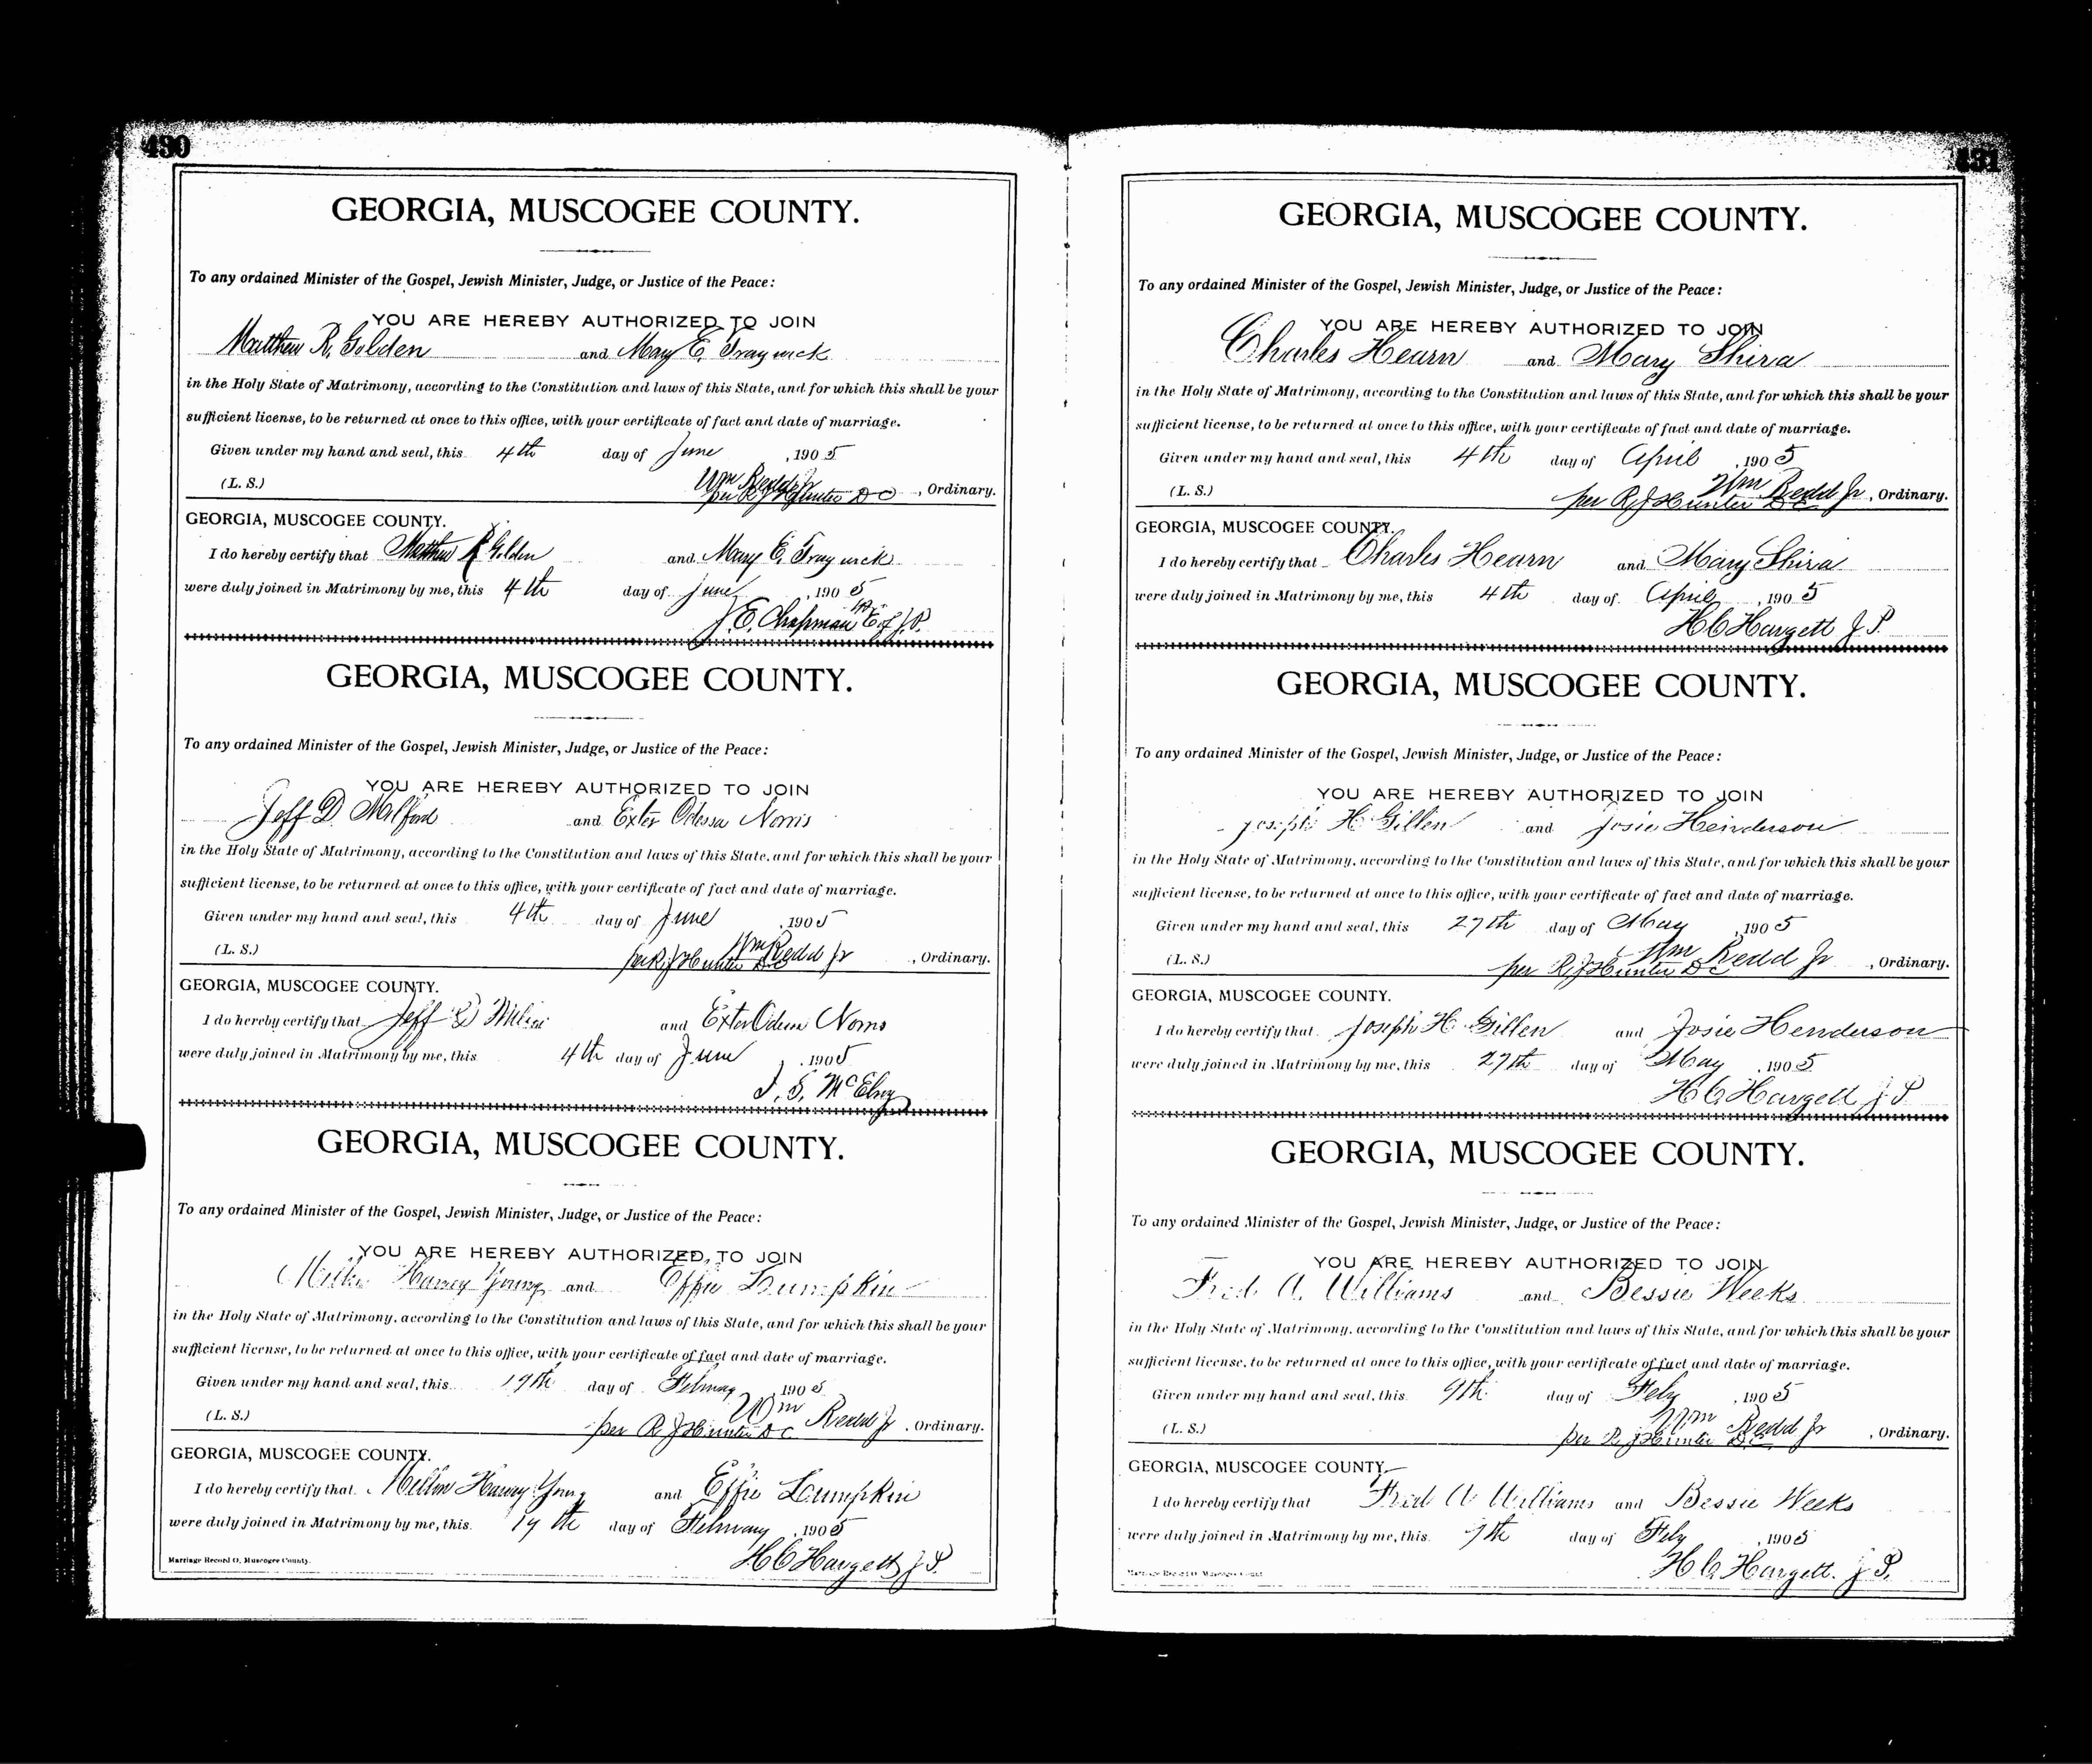 430
GEORGIA, MUSCOGEE COUNTY.
To any ordained Minister of the Gospel, Jewish Minister, Judge, or Justice of the Peace:
YOU ARE HEREBY AUTHORIZED TO JOIN
Matthew R. Golden and Mary E. Traywick
in the Holy State of Matrimony, according to the Constitution and laws of this State, and for which this shall be your
sufficient license, to be returned at once to this office, with your certificate of fact and date of marriage.
Given under my hand and seal, this 4th day of June, 1905
(L. S.) Wm Redd Jr
per R J Hunter D C, Ordinary.
GEORGIA, MUSCOGEE COUNTY.
I do hereby certify that Matthew R Golden and Mary E. Traywick
were duly joined in Matrimony by me, this 4th day of June, 1905
J. E. Chapman J.P.
GEORGIA, MUSCOGEE COUNTY.
To any ordained Minister of the Gospel, Jewish Minister, Judge, or Justice of the Peace:
YOU ARE HEREBY AUTHORIZED TO JOIN
Jeff D. Milford and Exter Odessa Norris
in the Holy State of Matrimony, according to the Constitution and laws of this State, and for which this shall be your
sufficient license, to be returned at once to this office, with your certificate of fact and date of marriage.
Given under my hand and seal, this 4th day of June, 1905
(L. S.) Wm Redd Jr
per R J Hunter D C, Ordinary.
GEORGIA, MUSCOGEE COUNTY.
I do hereby certify that Jeff D and Exter Odessa Norris
were duly joined in Matrimony by me, this 4th day of June, 1905
J. S. McElroy
GEORGIA, MUSCOGEE COUNTY.
To any ordained Minister of the Gospel, Jewish Minister, Judge, or Justice of the Peace:
YOU ARE HEREBY AUTHORIZED TO JOIN
Harvey Young and Effie Lumpkin
in the Holy State of Matrimony, according to the Constitution and laws of this State, and for which this shall be your
sufficient license, to be returned at once to this office, with your certificate of fact and date of marriage.
Given under my hand and seal, this 19th day of February, 1905
(L. S.) Wm Redd Jr
per R J Hunter D C, Ordinary.
GEORGIA, MUSCOGEE COUNTY.
I do hereby certify that Harvey Young and Effie Lumpkin
were duly joined in Matrimony by me, this 19th day of February, 1905
H C Hargett J P.
Marriage Record O, Muscogee County.
431
GEORGIA, MUSCOGEE COUNTY.
To any ordained Minister of the Gospel, Jewish Minister, Judge, or Justice of the Peace:
YOU ARE HEREBY AUTHORIZED TO JOIN
Charles Hearn and Mary Shira
in the Holy State of Matrimony, according to the Constitution and laws of this State, and for which this shall be your
sufficient license, to be returned at once to this office, with your certificate of fact and date of marriage.
Given under my hand and seal, this 4th day of April, 1905
(L. S.) Wm Redd Jr
per R J Hunter D C, Ordinary.
GEORGIA, MUSCOGEE COUNTY.
I do hereby certify that Charles Hearn and Mary Shira
were duly joined in Matrimony by me, this 4th day of April, 1905
H C Hargett J P.
GEORGIA, MUSCOGEE COUNTY.
To any ordained Minister of the Gospel, Jewish Minister, Judge, or Justice of the Peace:
YOU ARE HEREBY AUTHORIZED TO JOIN
Joseph H Gillen and Josie Heinderson
in the Holy State of Matrimony, according to the Constitution and laws of this State, and for which this shall be your
sufficient license, to be returned at once to this office, with your certificate of fact and date of marriage.
Given under my hand and seal, this 27th day of May, 1905
(L. S.) Wm Redd Jr
per R J Hunter D C, Ordinary.
GEORGIA, MUSCOGEE COUNTY.
I do hereby certify that Joseph H Gillen and Josie Henderson
were duly joined in Matrimony by me, this 27th day of May, 1905
H C Hargett J P
GEORGIA, MUSCOGEE COUNTY.
To any ordained Minister of the Gospel, Jewish Minister, Judge, or Justice of the Peace:
YOU ARE HEREBY AUTHORIZED TO JOIN
Fred A. Williams and Bessie Weeks
in the Holy State of Matrimony, according to the Constitution and laws of this State, and for which this shall be your
sufficient license, to be returned at once to this office, with your certificate of fact and date of marriage.
Given under my hand and seal, this 9th day of Feby, 1905
(L. S.) Wm Redd Jr
per R J Hunter D C, Ordinary.
GEORGIA, MUSCOGEE COUNTY.
I do hereby certify that Fred A Williams and Bessie Weeks
were duly joined in Matrimony by me, this 9th day of Feby, 1905
H C Hargett. J P.
Marriage Record O, Muscogee County.